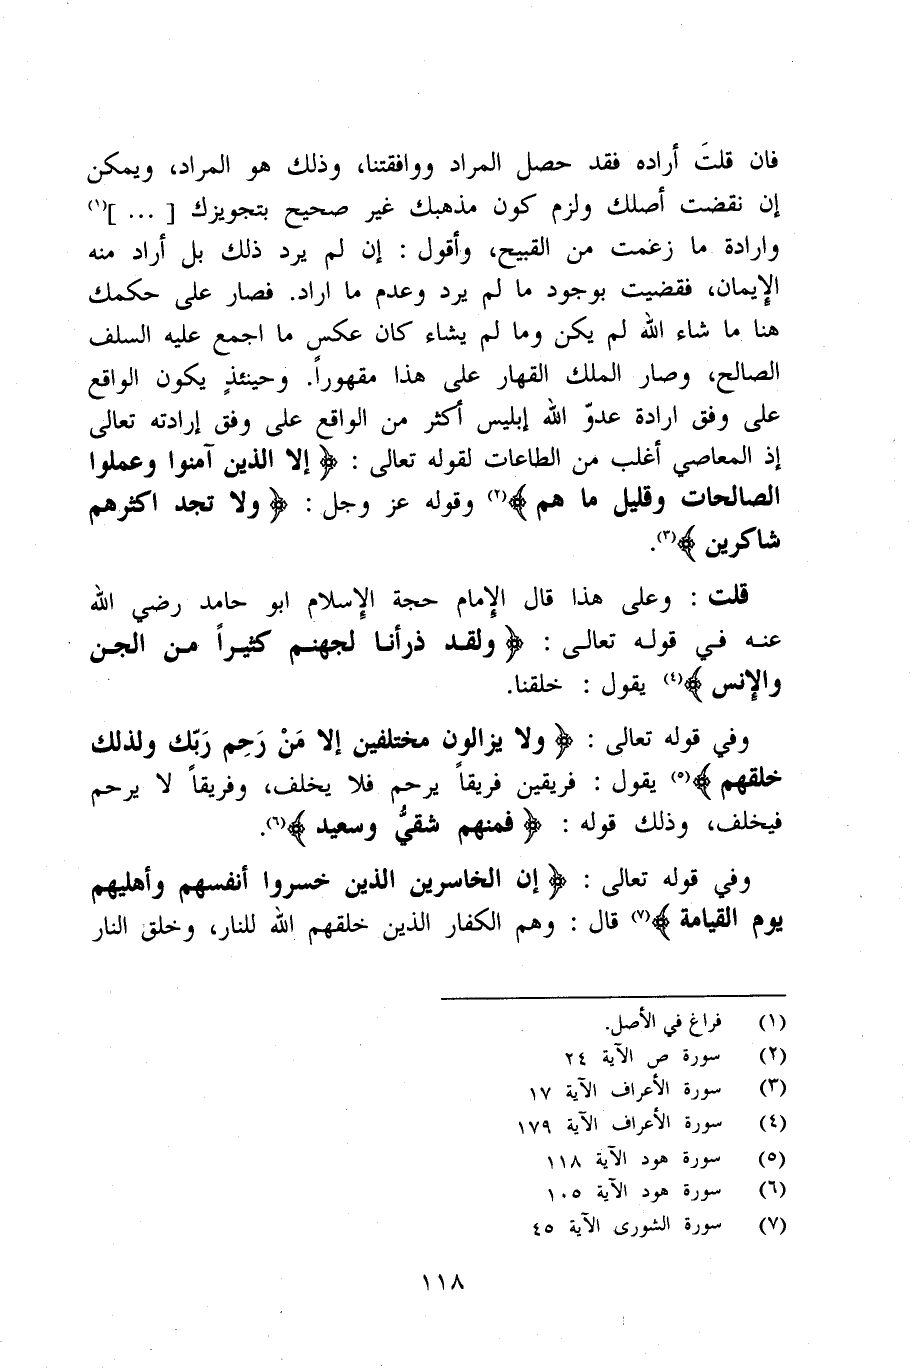 فان قلتَ أراده فقد حصل المراد ووافقتنا، وذلك هو المراد، ويمكن
إن نقضت أصلك ولزم كون مذهبك غير صحيح بتجويزك [ ... ](١)
وارادة ما زعمت من القبيح، وأقول : إن لم يرد ذلك بل أراد منه
الإيمان، فقضيت بوجود ما لم يرد وعدم ما اراد. فصار على حكمك
هنا ما شاء الله لم يكن وما لم يشاء كان عكس ما اجمع عليه السلف
الصالح، وصار الملك القهار على هذا مقهوراً. وحينئذٍ يكون الواقع
على وفق ارادة عدوّ الله إبليس أكثر من الواقع على وفق إرادته تعالى
إذ المعاصي أغلب من الطاعات لقوله تعالى : ﴿ إلا الذين آمنوا وعملوا
الصالحات وقليل ما هم ﴾(٢) وقوله عز وجل : ﴿ ولا تجد اكثرهم
شاكرين ﴾(٣).
قلت : وعلى هذا قال الإمام حجة الإسلام ابو حامد رضي الله
عنه في قوله تعالى : ﴿ ولقد ذرأنا لجهنم كثيراً من الجن
والإنس ﴾(٤) يقول : خلقنا.
وفي قوله تعالى : ﴿ ولا يزالون مختلفين إلا مَنْ رَحِم رَبّك ولذلك
خلقهم ﴾(٥) يقول : فريقين فريقاً يرحم فلا يخلف، وفريقاً لا يرحم
فيخلف، وذلك قوله : ﴿ فمنهم شقيٌّ وسعيد ﴾(٦).
وفي قوله تعالى : ﴿ إن الخاسرين الذين خسروا أنفسهم وأهليهم
يوم القيامة ﴾(٧) قال : وهم الكفار الذين خلقهم الله للنار، وخلق النار
(١) فراغ في الأصل.
(٢) سورة ص الآية ٢٤
(٣) سورة الأعراف الآية ١٧
(٤) سورة الأعراف الآية ١٧٩
(٥) سورة هود الآية ١١٨
(٦) سورة هود الآية ١٠٥
(٧) سورة الشورى الآية ٤٥
١١٨